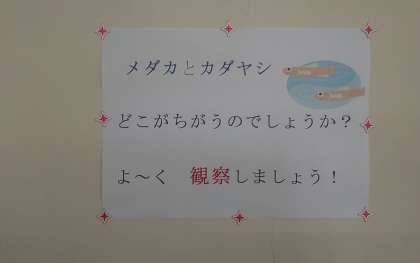 メダカとカダヤシ
どこがちがうのでしょうか？
よ～く　観察しましょう！